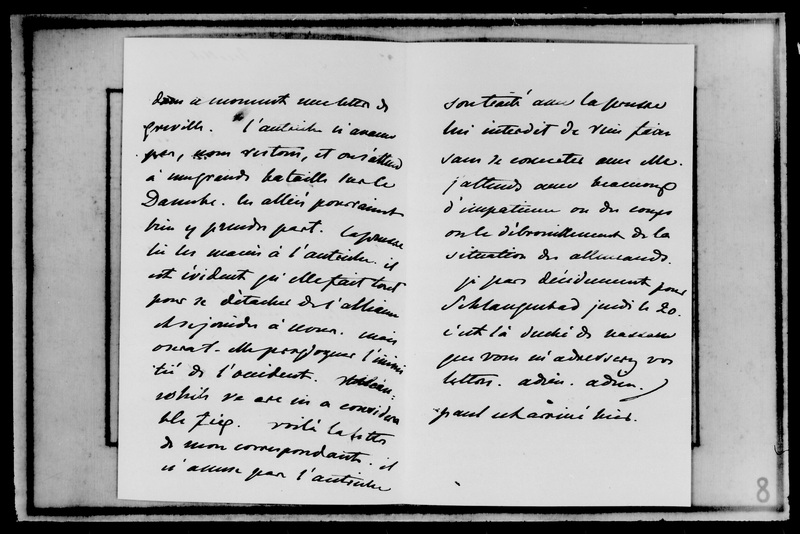 dans a moment une lettre de
Greville. "l'autriche n'avance
pas, nous restons, et on s'attend
à une grande bataille sur le
Danube. les alliés pourraient
bien y prendre part. la prusse
lie les mains à l'autriche. il
est évident qu'elle fait tout
pour se détacher de l'alliance
et se joindre à nous. mais
oserat-elle provoquer l'inimi
tié de l'occident.
while we are in a considera
ble fix. voilà la lettre
de mon correspondant. il
n'accuse pas l'autriche
son traité avec la prusse
lui interdit de rien faire
sans se concerter avec elle.
j'attends avec beaucoup
d'impatience ou des coups
ou le débrouillement de la
situation des allemands.
je pars décidément pour
Schlangenbad jeudi le 20.
c'est là duché de nassau
que vous m'adresserez vos
lettres. adieu. adieu.
paul est arrivé hier.
8